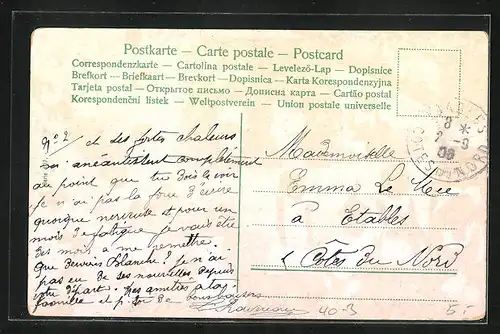 Postkarte — Carte postale — Postcard
Correspondenzkarte — Cartolina postale — Levelező-Lap — Dopisnice
Brefkort — Briefkaart — Brevkort — Dopisnica — Karta Korespondenzyjna
Tarjeta postal — Открытое письмо — Дописна карта — Cartão postal
Korespondenční listek — Weltpostverein — Union postale universelle
ETABLES
8
2-9
06
CÔTES DU NORD
Nº 2 et des fortes chaleurs
anéantissent complètement
au point que tu dois le voir
je n'ai pas la force d'écrire
quoique nerveuse et pour un
mois de fatigue je vais être
des mois à me remettre.
Que devient Blanche? Je n'ai
pas eu de ses nouvelles depuis
votre départ. Mes amitiés à ta
famille et
Mademoiselle
Emma Le
à Etables
Côtes du Nord
40-3
5.-